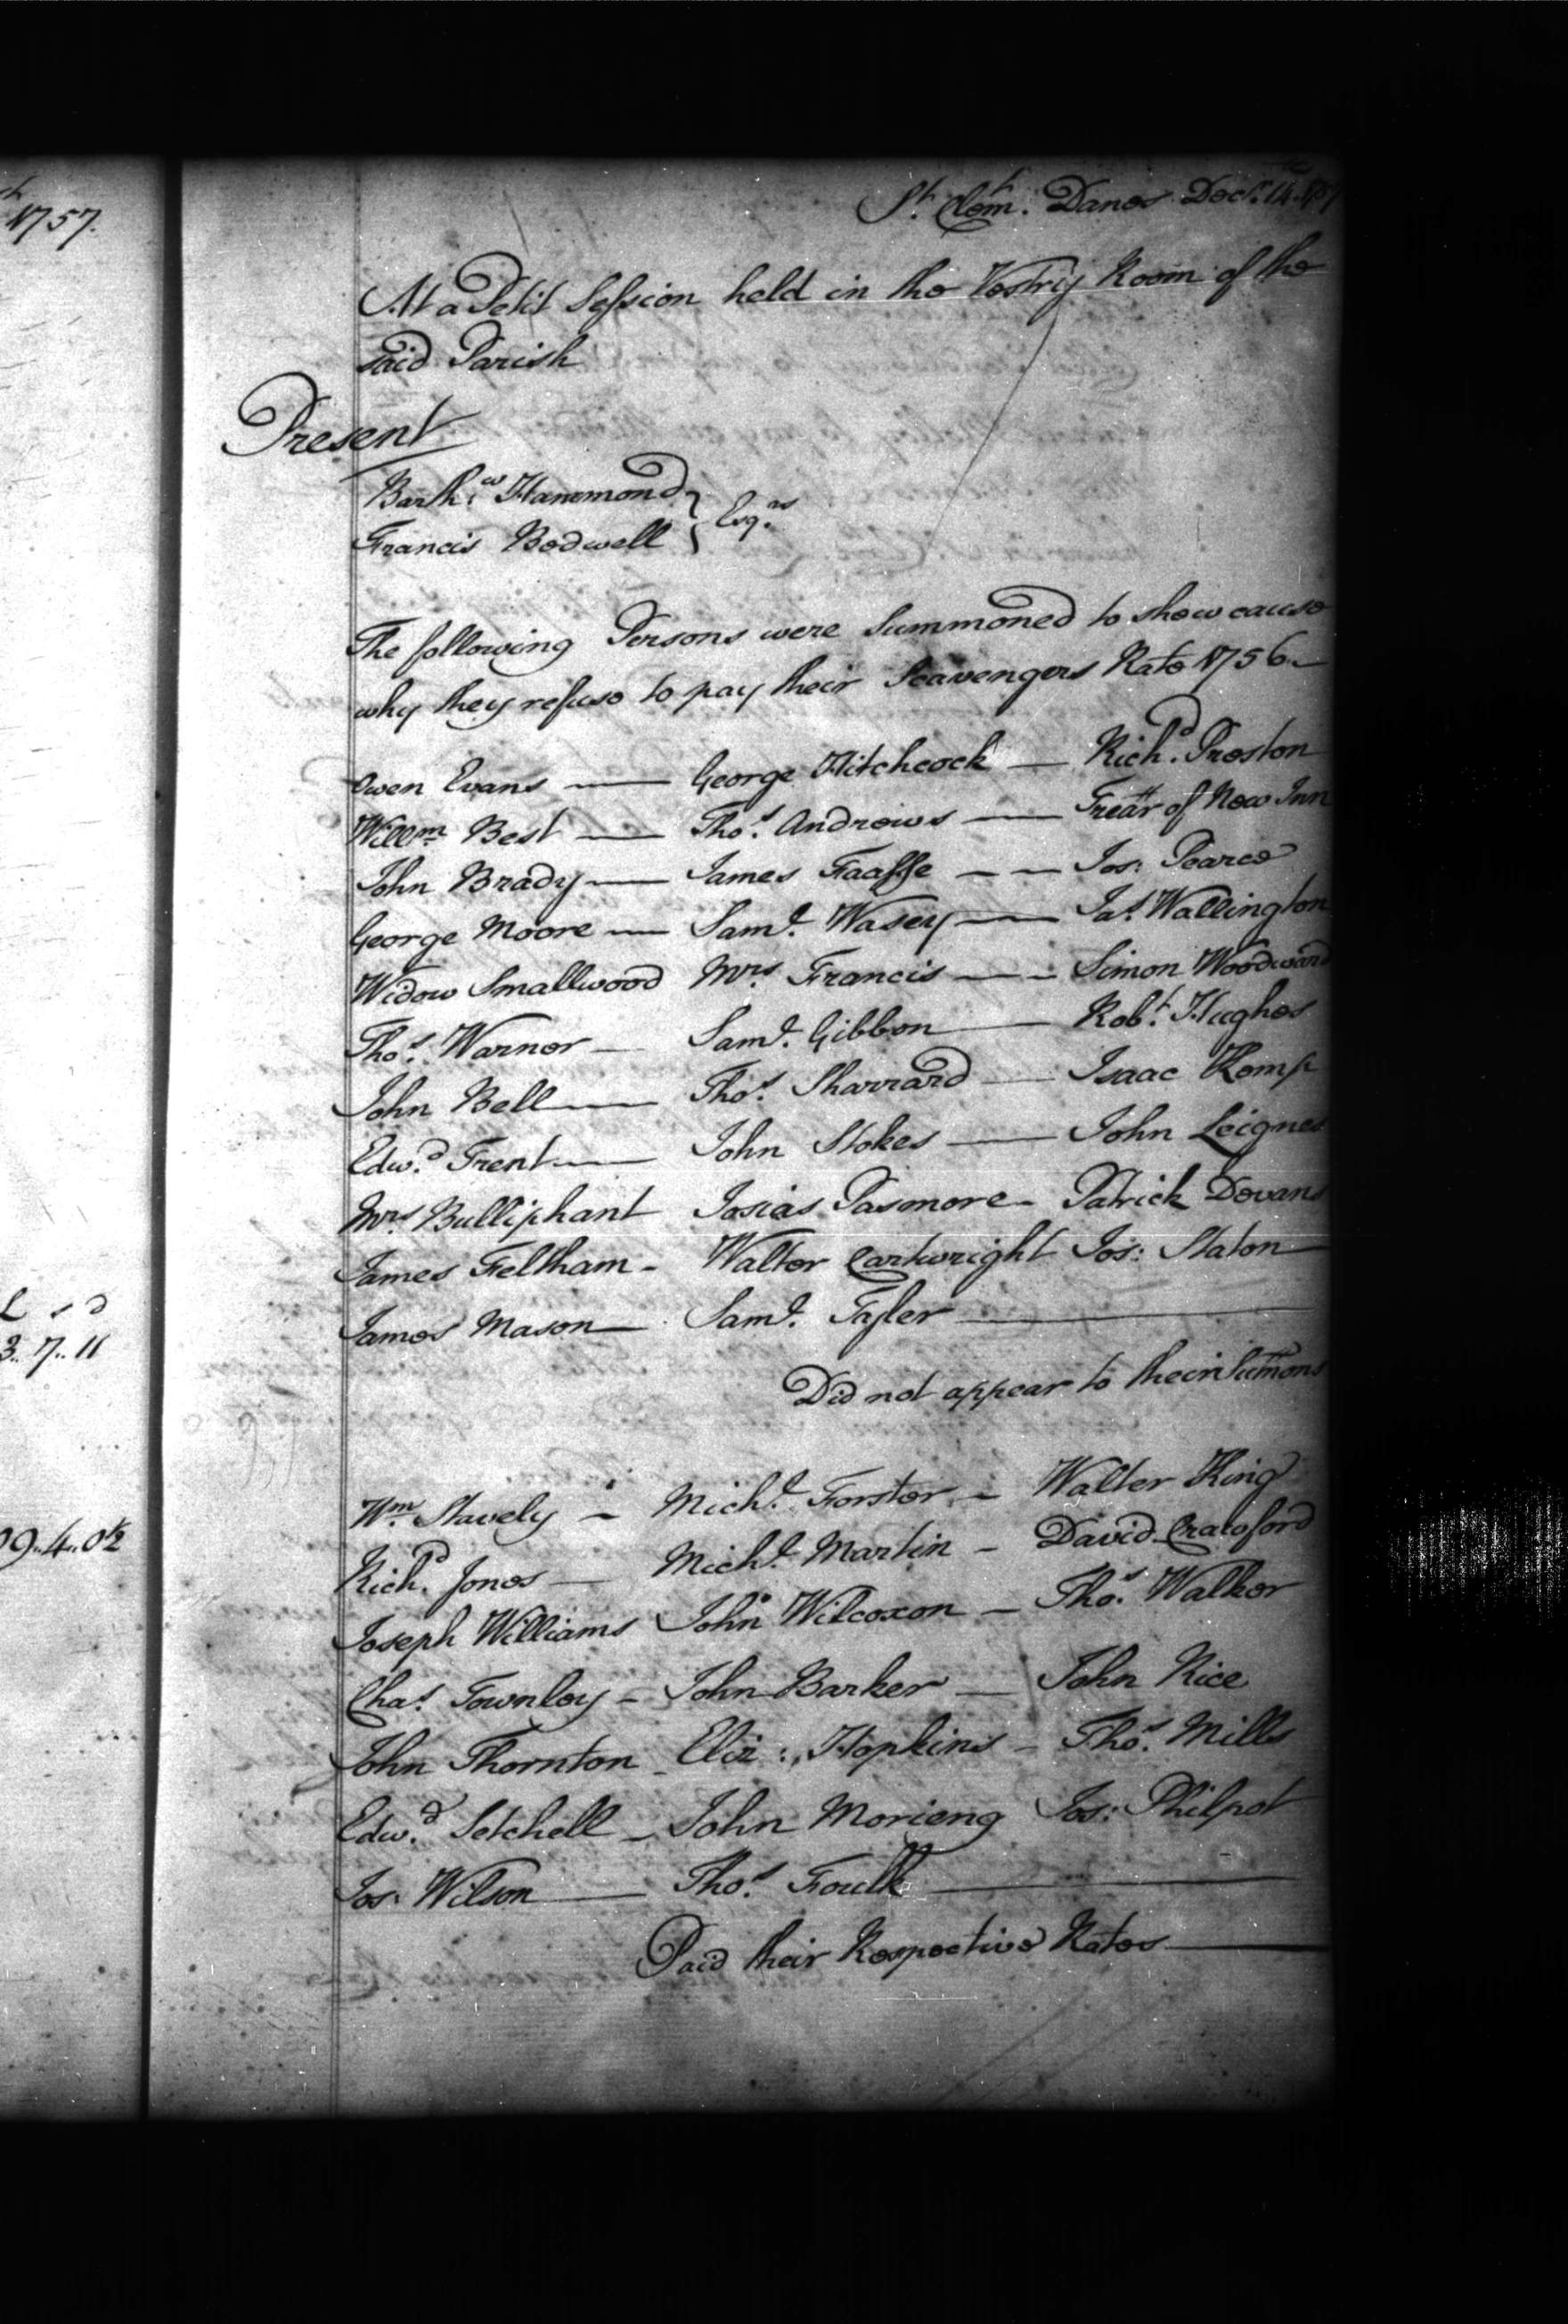 1757.
L s d
3. 7. 11
9. 4. 0½
St. Clem.t Danes Decr. 14. 1757
At a Petit Session held in the Vestry Room of the
said Parish
Present
Barth.w Hammond } Esqrs
Francis Bedwell }
The following Persons were Summoned to shew cause
why they refuse to pay their Scavengers Rate 1756 —
Owen Evans — George Hitchcock — Richd. Preston
Willm Best — Thos. Andrews — Trear of New Inn
John Brady — James Faasse — — Jos: Pearce
George Moore — Saml. Wasey — Jas. Wallington
Widow Smallwood Mrs. Francis — — Simon Woodward
Thos. Warner — Saml. Gibbon — Robt. Hughes
John Bell — Thos. Sharrard — Isaac Kemp
Edwd. Trent — John Stokes — John Leignes
Mrs. Bulliphant Josias Pasmore — Patrick Devans
James Feltham - Walter Cartwright Jos: Staton —
James Mason — Saml. Tayler —
Did not appear to their Summons
Wm. Stavely — Michl. Forster — Walter King
Richd. Jones — Michl. Martin — David Crawford
Joseph Williams John Wilcoxon — Thos. Walker
Chas. Townley - John Barker — John Rice
John Thornton - Eliz: Hopkins - Thos. Mills
Edwd. Setchell - John Morieng Jos: Philpot
Jos: Wilson — Thos. Foulk —
Paid their Respective Rates —